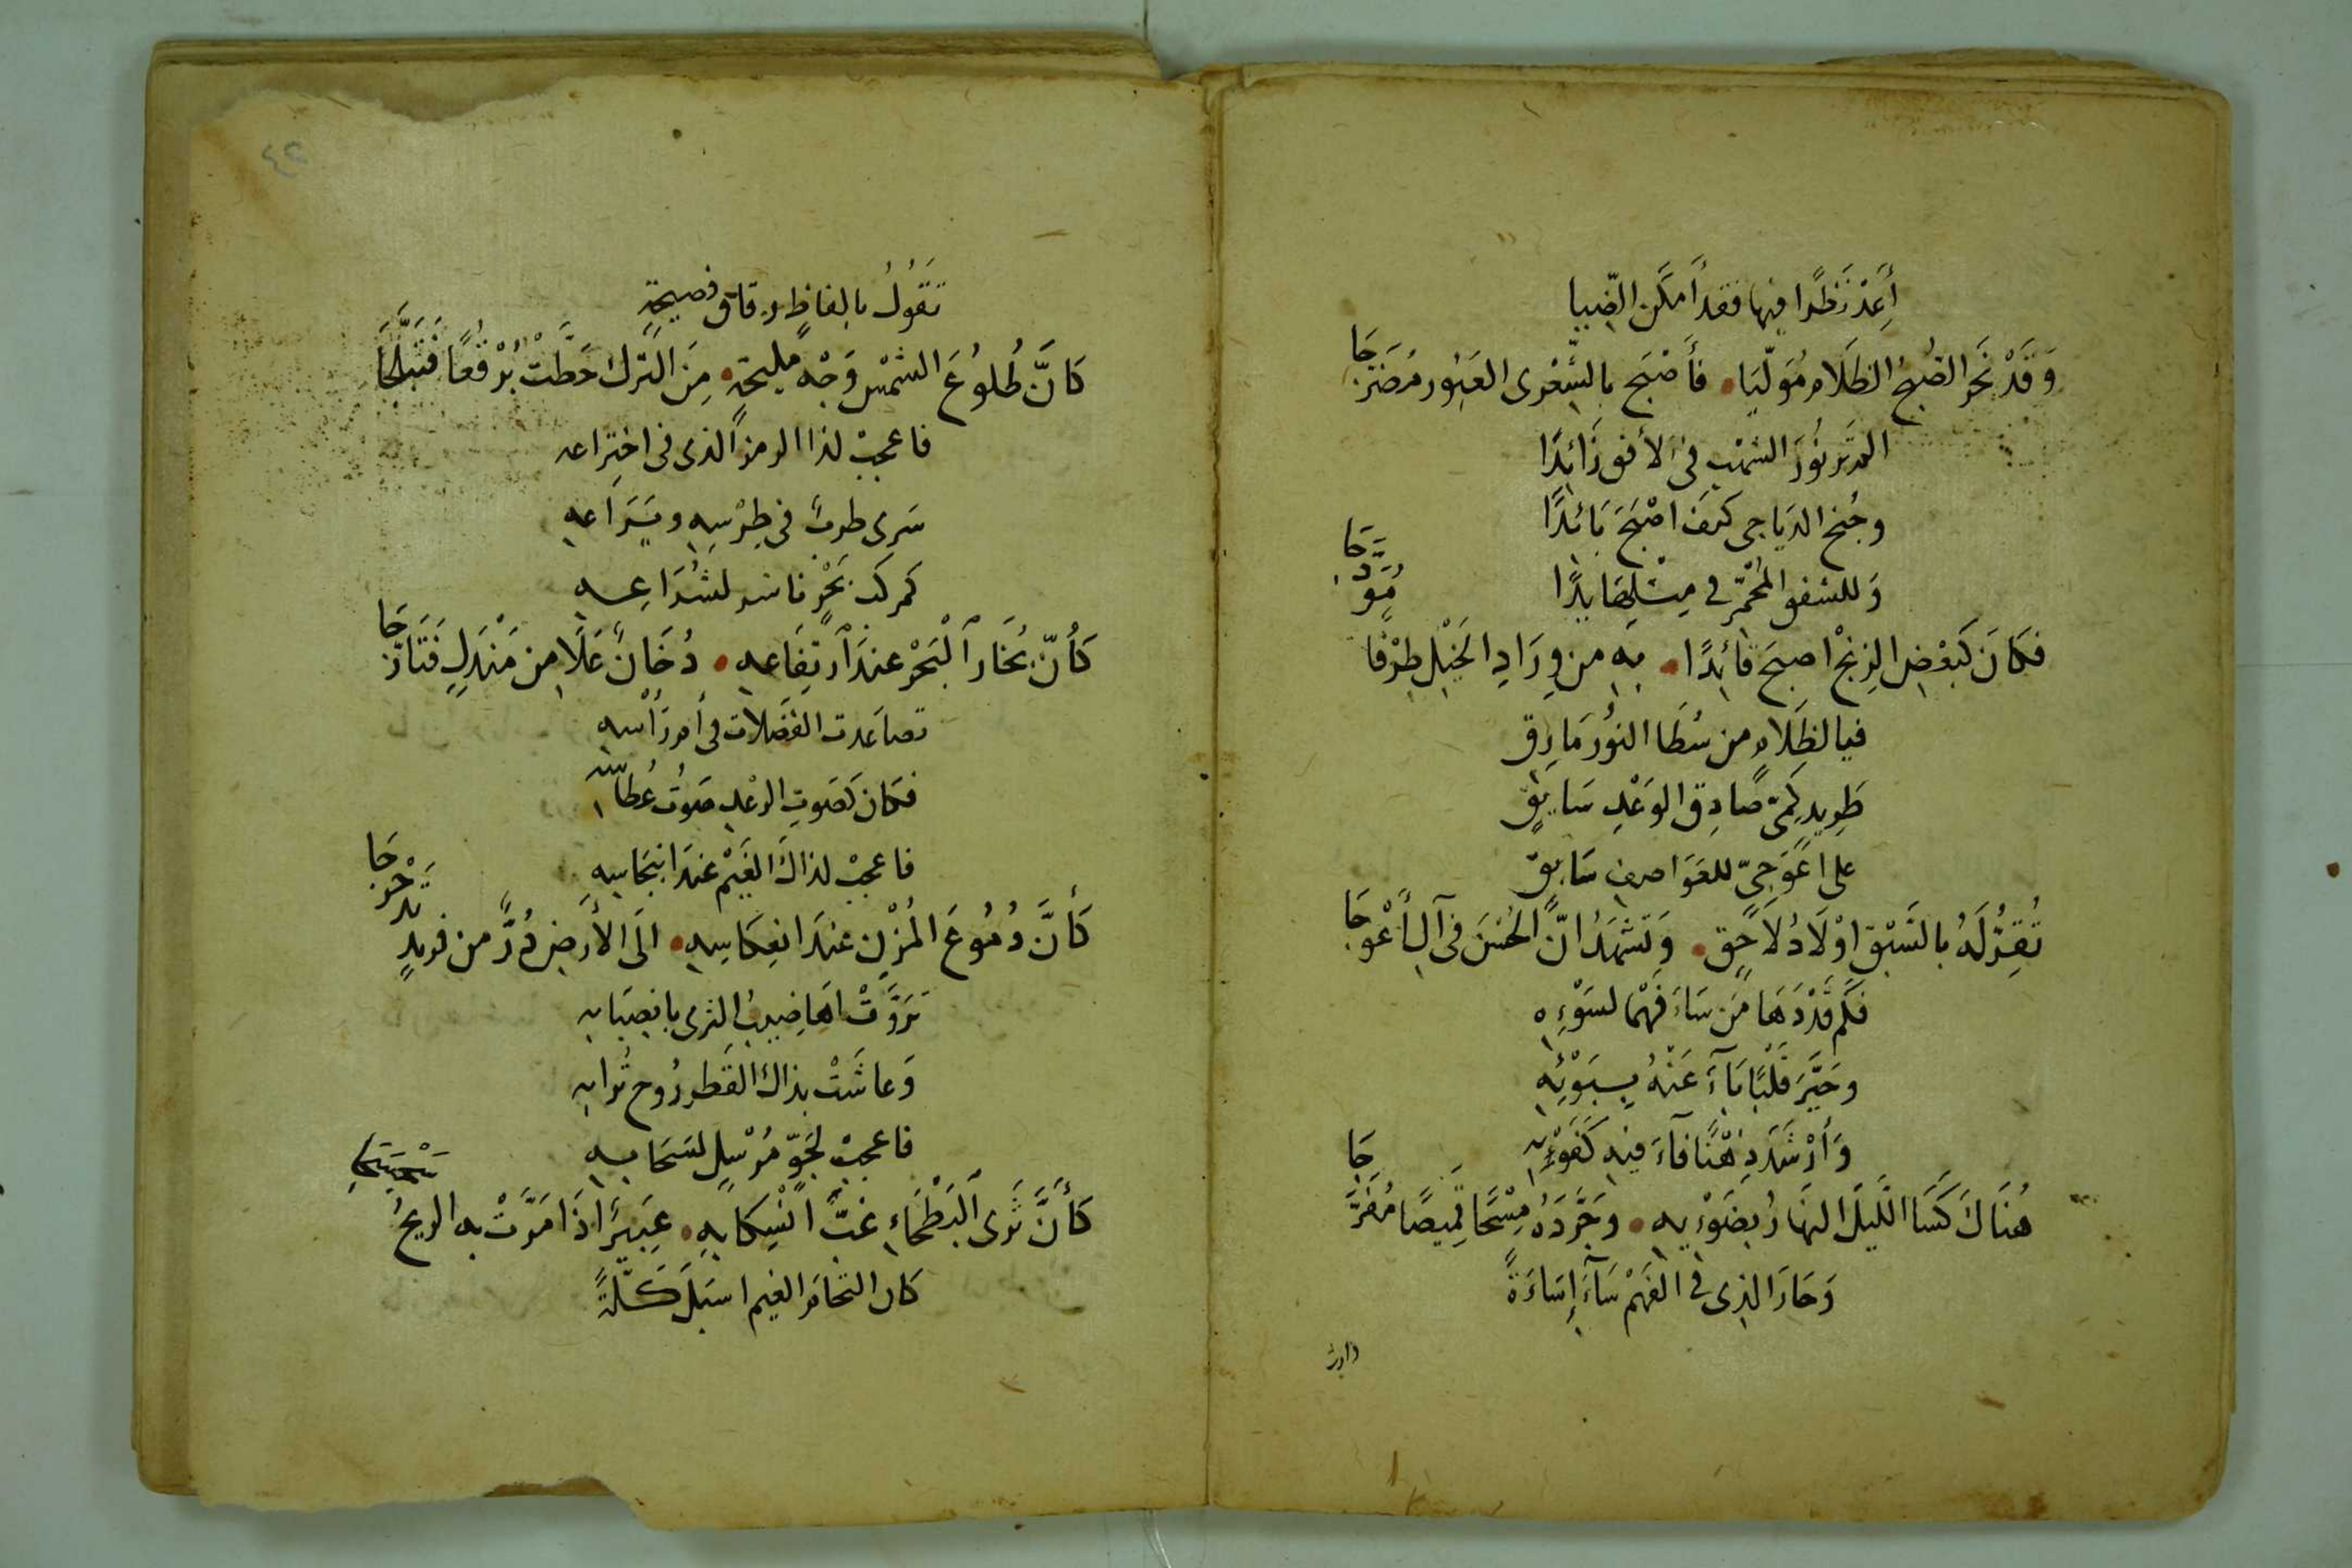 أَعِدْ نَظَرًا فيها فقد أَمكَن الضّيا
وَقَدْ نَحَر الصُبحُ الظَلَام مُوَلّيَا • فأَصْبَح بالشِّعْرى العَبُور مُضَرَّجَا
الم تَر نُورَ الشهْب في الأفق زَائِدًا
وجُنح الدَياجى كَيفَ اصْبَحَ بَائدًا
وَللشفق المُحْمَرّ في مِثْلِهَا يدًا
فكَانَ كَبَعْضِ الزنج اصبحَ قائِدًا • بِهِ من وِرَادِ الخَيْل طِرْفًا مُوَدَّجَا
فيا لظلامٍ من سُطَا النُور مَارِقِ
طَرِيدِ كَمِىّ صَادِقِ الوَعْدِ سَابِقٍ
على اعْوَجِىّ للعَوَاصِف سَابِقٍ
تُقِرُّ لَهُ بالسَبْقِ اوْلَادُ لَاحِقٍ • وَتَشهَدُ انّ الحُسْنَ في آلِ أَعْوَجَا
فكَم قَدْ دَهَا مَن سَاءَ فَهْمًا لسَوْءِهِ
وحَيَّرَ قَلْبًا بَآءَ عَنْهُ بسَوْئِهِ
وَأرْشَدَ ذِهْنًا فآءَ فيه كَفَوْءِهِ
هُنَاكَ كَسَا اللَيلَ النهَارُ بضَوْئِهِ • وجَرَّدَهُ مِسْحًا قَمِيصًا مُفَرَّجَا
وَحَارَ الذى في الفَهْم سَآءَ إِسَاءَةً
٤٢
تقُولُ بالفاظٍ رِقاقٍ فصيحةٍ
كَانَّ طُلوُعَ الشمْسِ وَجْه مليحةٍ • مِنَ التركِ حَطَّتْ بُرْقُعًا فَتَبَلَّجَا
فاعجبْ لذا الرمز الذى في اختِراعه
سَرى طربً في طِرْسِهِ ويَرَاعهِ
كمركب بَحْرٍ ناشر لشُرَاعِـهِ
كَأَنّ بُخَارَ ٱلْبَحْر عندَ ٱرتِفَاعهِ • دُخَانٌ عَلَا مِن مَنْدَلٍ فَتَأرَّجَا
تصاعَدت الفضَلات في أمر رَأْسهِ
فكان كصَوتِ الرعْدِ صَوتُ عُطاسه
فاعجبْ لذاك الغَيْم عندَ انبجَاسهِ
كَأَنَّ دُمُوعَ المُزْن عندَ انعِكَاسِهِ • الَى الأَرضِ دُرٌّ من فريدٍ تدَحْرجَا
تَرَوَّتْ اهَاضِيبُ الثرى بانصِبَابه
وَعاشَتْ بذاك القَطْر رُوح تُرابه
فاعجبْ لجَوّ مُرْسِلٍ لسَحَابـهِ
كَأَنَّ ثَرى ٱلبَطْحَاءِ غبّ انْسِكَابهِ • عَبيرًا اذَا مَرَّتْ به الريحُ
كان التحام الغيم اسبَلَ كَـلّةً